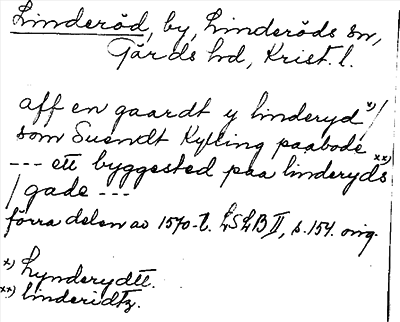 Linderöd, by, Linderöds sn,
Gärds hd, Krist. l.
aff en gaardt y linderyd x)/
som Suendt Kylling paabode
--- ett byggested paa linderyds xx)
/ gade ---
förra delen av 1570-t. LSLB II, s. 154. orig.
x) Lynderydtt.
xx) linderidtz.